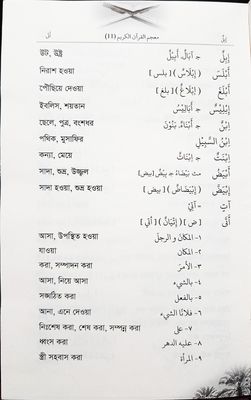 إِبِلٌ معجم القرآن الكريم (11) أَتَى
إِبِلٌ ج آبَالٌ، أَبِيْلٌ উট, উষ্ট্র
أَبْلَسَ (إِبْلَاسٌ) [ بلس ] নিরাশ হওয়া
أَبْلَغَ (إِبْلَاغٌ) [ بلغ ] পৌঁছিয়ে দেওয়া
إِبْلِيْسُ ج أَبَالِيْسُ ইবলিস, শয়তান
اِبْنٌ ج أَبْنَاءٌ، بَنُوْنَ ছেলে, পুত্র, বংশধর
اِبْنُ السَّبِيْلِ পথিক, মুসাফির
اِبْنَةٌ ج بَنَاتٌ কন্যা, মেয়ে
أَبْيَضُ مث بَيْضَاءُ ج بِيْضٌ [ بيض ] সাদা, শুভ্র, উজ্জ্বল
اِبْيَضَّ (اِبْيِضَاضٌ) [ بيض ] সাদা হওয়া, শুভ্র হওয়া
آتٍ - آتِيْ
أَتَى [ ض ] (إِتْيَانٌ) [ أتي ]
١- المكانَ و الرجلَ আসা, উপস্থিত হওয়া
٢- المكانَ যাওয়া
٣- الأمرَ করা, সম্পাদন করা
٤- بالشيءِ আসা, নিয়ে আসা
٥- بالفعل সঙ্ঘটিত করা
٦- فلانًا الشيءَ আনা, এনে দেওয়া
٧- على নিঃশেষ করা, শেষ করা, সম্পন্ন করা
٨- عليه الدهر ধ্বংস করা
٩- المرأة স্ত্রী সহবাস করা